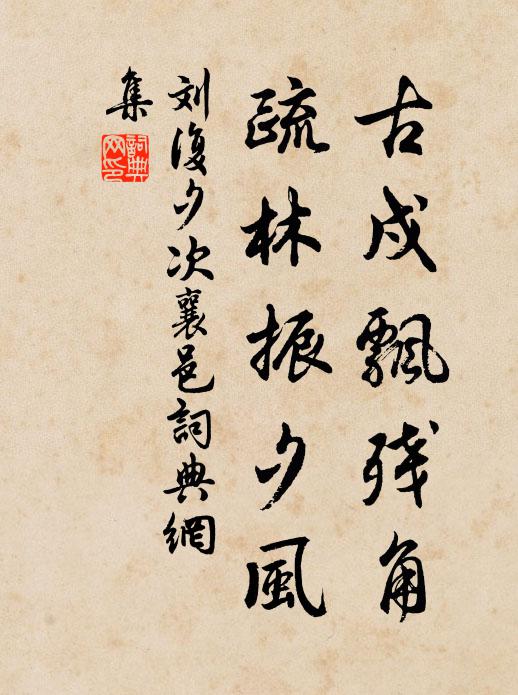 古戍飘残角
疏林振夕風
刘復夕次襄邑詞典網
集
詞典
网印